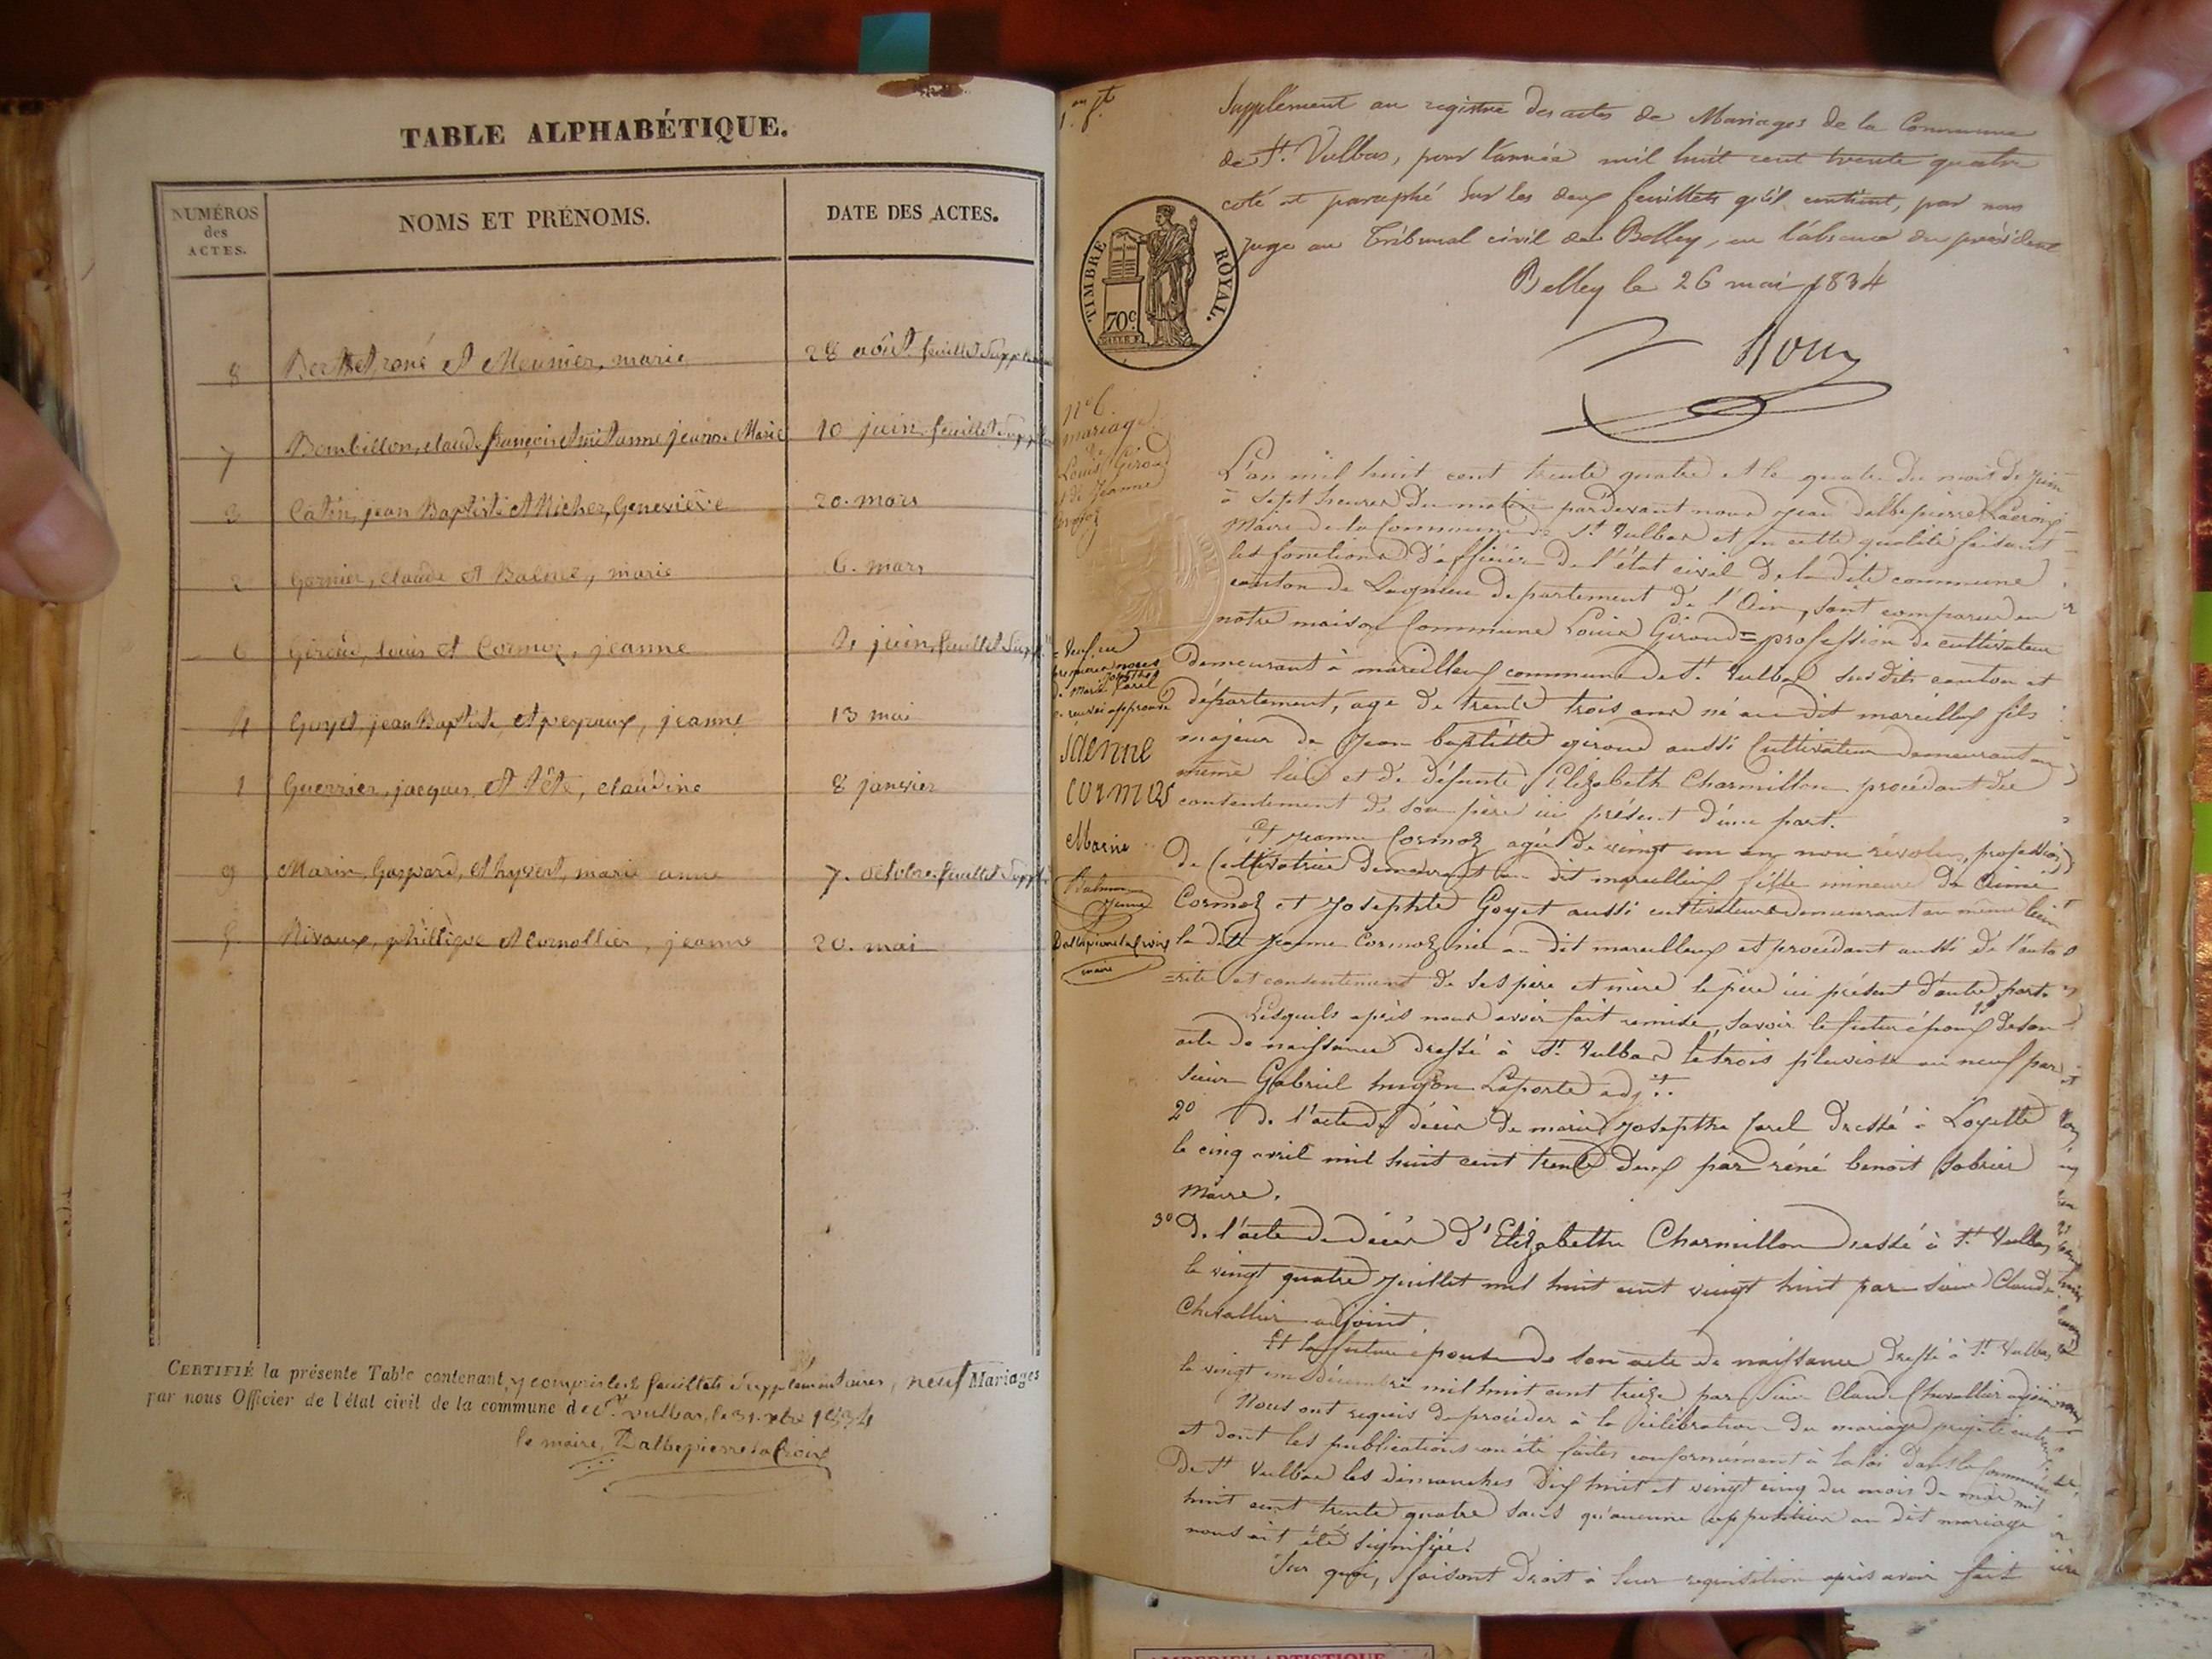 TABLE ALPHABÉTIQUE.
NUMÉROS des ACTES.
NOMS ET PRÉNOMS.
DATE DES ACTES.
8 Berthet, rené et Meunier, marie 28 août feuillet Supplem
7 Bombillon, claude françois et anne jeanne Marie 10 juin feuillet Supp
3 Catin, jean Baptiste et Micher, Geneviève 20. mars
2 Garnier, claude et marie 6. mars
6 Giroud, louis et Cormoz, jeanne 4. juin, feuillet Suppl
4 Guyet, jean Baptiste et peyraux, jeanne 13 mai
1 Guerrier, jacques, et tête, claudine 8 janvier
9 Marin, Gaspard, et hyvert, marie anne 7. octobre feuillet Suppl
5 Rivaux, phillippe et Cornollier, jeanne 20. mai
CERTIFIÉ la présente Table contenant, y compris les 2 feuillets supplémentaires, neuf Mariages
par nous Officier de l'état civil de la commune de St. vulbas, le 31. xbre 1834
le maire, Dalbepierre la Croix
1er ft
Supplément au registre des actes de Mariages de la Commune
de St. Vulbas, pour l'année mil huit cent trente quatre
coté et paraphé Sur les deux feuillets qu'il contient, par nous
juge au Tribunal civil de Belley, en l'absence du président
Belley le 26 mai 1834
TIMBRE ROYAL.
70c.
Roux
n° 6
mariage
de
Louis Giroud
et de Jeanne
Cormoz
L'an mil huit cent trente quatre et le quatre du mois de juin
à Sept heures du matin pardevant nous Jean Dalbepierre Lacroix
Maire de la Commune de St. Vulbas et en cette qualité faisant
les fonctions d'officier de l'état civil de la dite commune
canton de Lagnieu departement de l'Ain, sont comparus en
notre maison Commune Louis Giroud = profession de cultivateur
demeurant à marcilleux commune de St. Vulbas susdits canton et
département, age de trente trois ans né au dit marcilleux fils
majeur de Jean baptiste giroud aussi Cultivateur demeurant au
même lieu et de défunte Elizabeth Charmillon procédant du
consentement de son père ici présent d'une part.
= Veuf en
premières noces
de Marie josephte Carel
renvoi approuvé
Jaenne
cormos
Maine
Dalbepierre la Croix
maire
Et Jeanne Cormoz agée de vingt un an non révolus, profession
de Cultivatrice demeurant au dit marcilleux fille mineure de Aimé
Cormoz et Josephte Goyet aussi cultivateurs demeurant au même lieu
la dite Jeanne Cormoz née au dit marcilleux et procédant aussi de l'auto
=rité et consentement de Ses père et mère le père ici présent d'autre part.
Lesquels après nous avoir fait remise, savoir le futur époux 1° de son
acte de naissance dressé à St. Vulbas le trois pluviose an neuf par
sieur Gabriel hugon Laporte adjt.
2° De l'acte de décès de marie Josephte Carel Dressé à Loyette
le cinq avril mil huit cent trente deux par réné benoit Sobrier
Maire.
3° De l'acte de décès d'Elizabethe Charmillon dressé à St. Vulbas
le vingt quatre Juillet mil huit cent vingt huit par Sieur Claude
Chevallier adjoint
Et la future épouse de son acte de naissance dressé à St. Vulbas
le vingt un décembre mil huit cent treize par Sieur Claude Chevallier adjoint
Nous ont requis de procéder à la Célébration du mariage projeté entre eux
et dont les publications ont été faites conformément à la loi dans la Commune
de St. Vulbas les dimanches dix huit et vingt cinq du mois de mai mil
huit cent trente quatre sans qu'aucune opposition au dit mariage
nous ait été signifiée.
Sur quoi, faisant Droit à leur requisition après avoir fait
AMBERIEU ARTISTIQUE